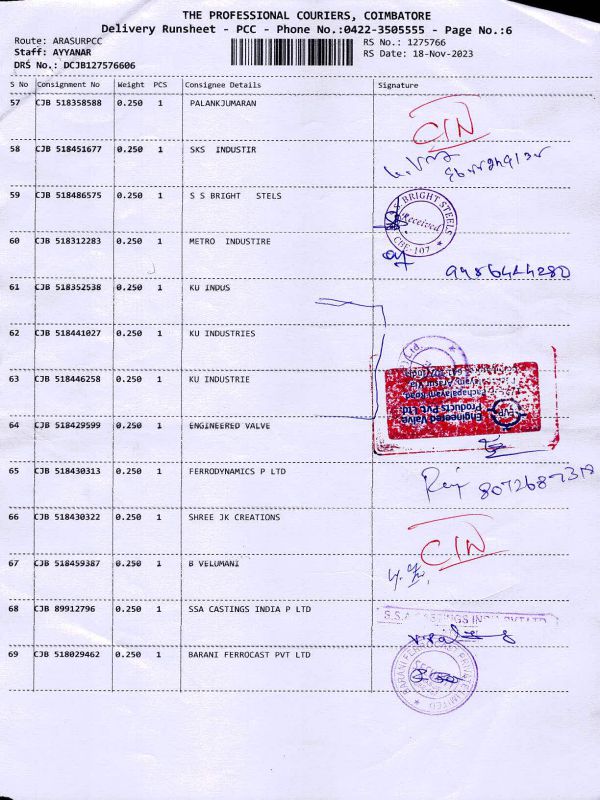 THE PROFESSIONAL COURIERS, COIMBATORE
Delivery Runsheet - PCC - Phone No.:0422-3505555 - Page No.:6
Route: ARASURPCC RS No.: 1275766
Staff: AYYANAR RS Date: 18-Nov-2023
DRS No.: DCJB127576606
S No Consignment No Weight PCS Consignee Details Signature
57 CJB 518358588 0.250 1 PALANKJUMARAN
CIN
58 CJB 518451677 0.250 1 SKS INDUSTIR
59 CJB 518486575 0.250 1 S S BRIGHT STELS
S BRIGHT STEELS
Received
CBE-107
60 CJB 518312283 0.250 1 METRO INDUSTIRE
9486444280
61 CJB 518352538 0.250 1 KU INDUS
62 CJB 518441027 0.250 1 KU INDUSTRIES
63 CJB 518446258 0.250 1 KU INDUSTRIE
Engineered Valve
Products Pvt Ltd
64 CJB 518429599 0.250 1 ENGINEERED VALVE
65 CJB 518430313 0.250 1 FERRODYNAMICS P LTD
66 CJB 518430322 0.250 1 SHREE JK CREATIONS
CIN
67 CJB 518459387 0.250 1 B VELUMANI
68 CJB 89912796 0.250 1 SSA CASTINGS INDIA P LTD
69 CJB 518029462 0.250 1 BARANI FERROCAST PVT LTD
BARANI FERROCAST PRIVATE LIMITED